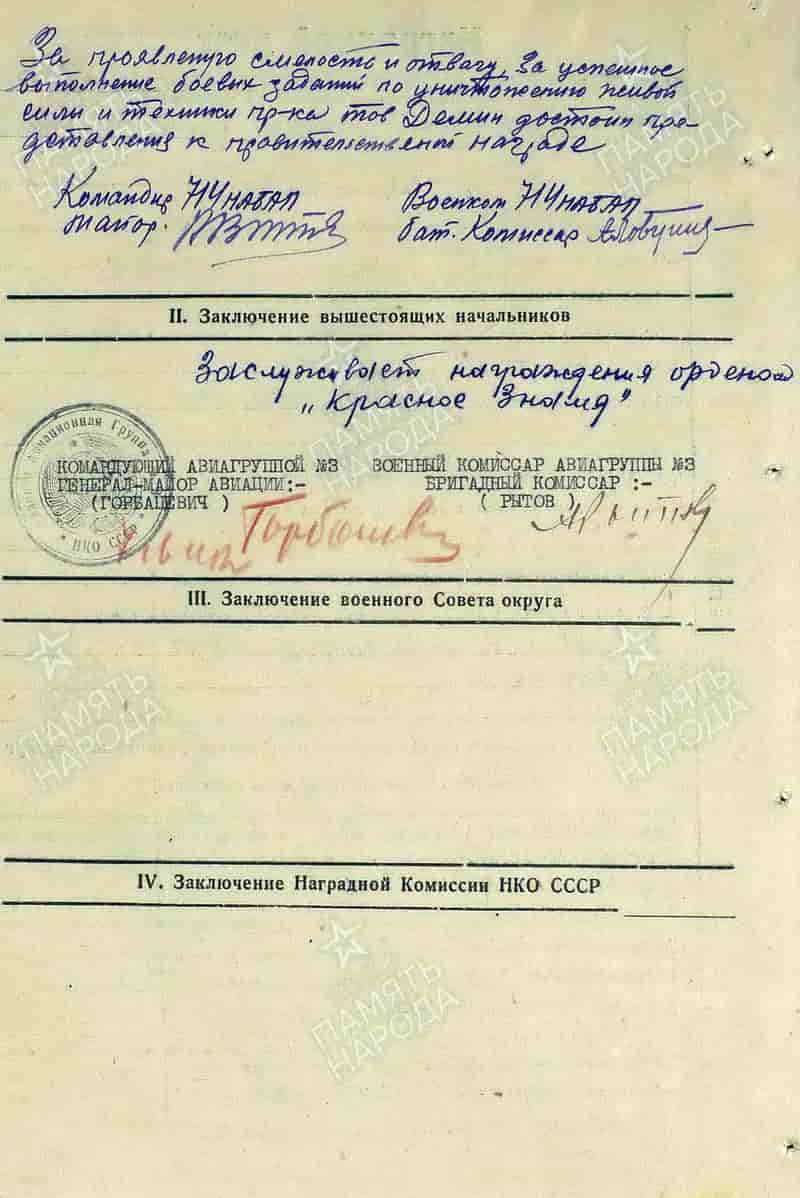 За проявленую смелость и отвагу, За успешное
выполнение боевых заданий по уничтожению живой
сили и техники пр-ка тов Демин достоин пре-
доставления к правительственной награде
Командир НЧНАБАП
Майор.
Военком НЧНАБАП
бат. Комиссар
II. Заключение вышестоящих начальников
Заслуживает награждения орденом
„Красное Знамя"
КОМАНДУЮЩИЙ АВИАГРУППОЙ №3
ГЕНЕРАЛ-МАЙОР АВИАЦИИ:-
(ГОРБАЦЕВИЧ )
ВОЕННЫЙ КОМИССАР АВИАГРУППЫ №3
БРИГАДНЫЙ КОМИССАР :-
( РЫТОВ )
Авиационная Группа
НКО СССР
III. Заключение военного Совета округа
IV. Заключение Наградной Комиссии НКО СССР
ПАМЯТЬ
НАРОДА
ПАМЯТЬ
НАРОДА
ПАМЯТЬ
НАРОДА
ПАМЯТЬ
НАРОДА
ПАМЯТЬ
НАРОДА
ПАМЯТЬ
НАРОДА